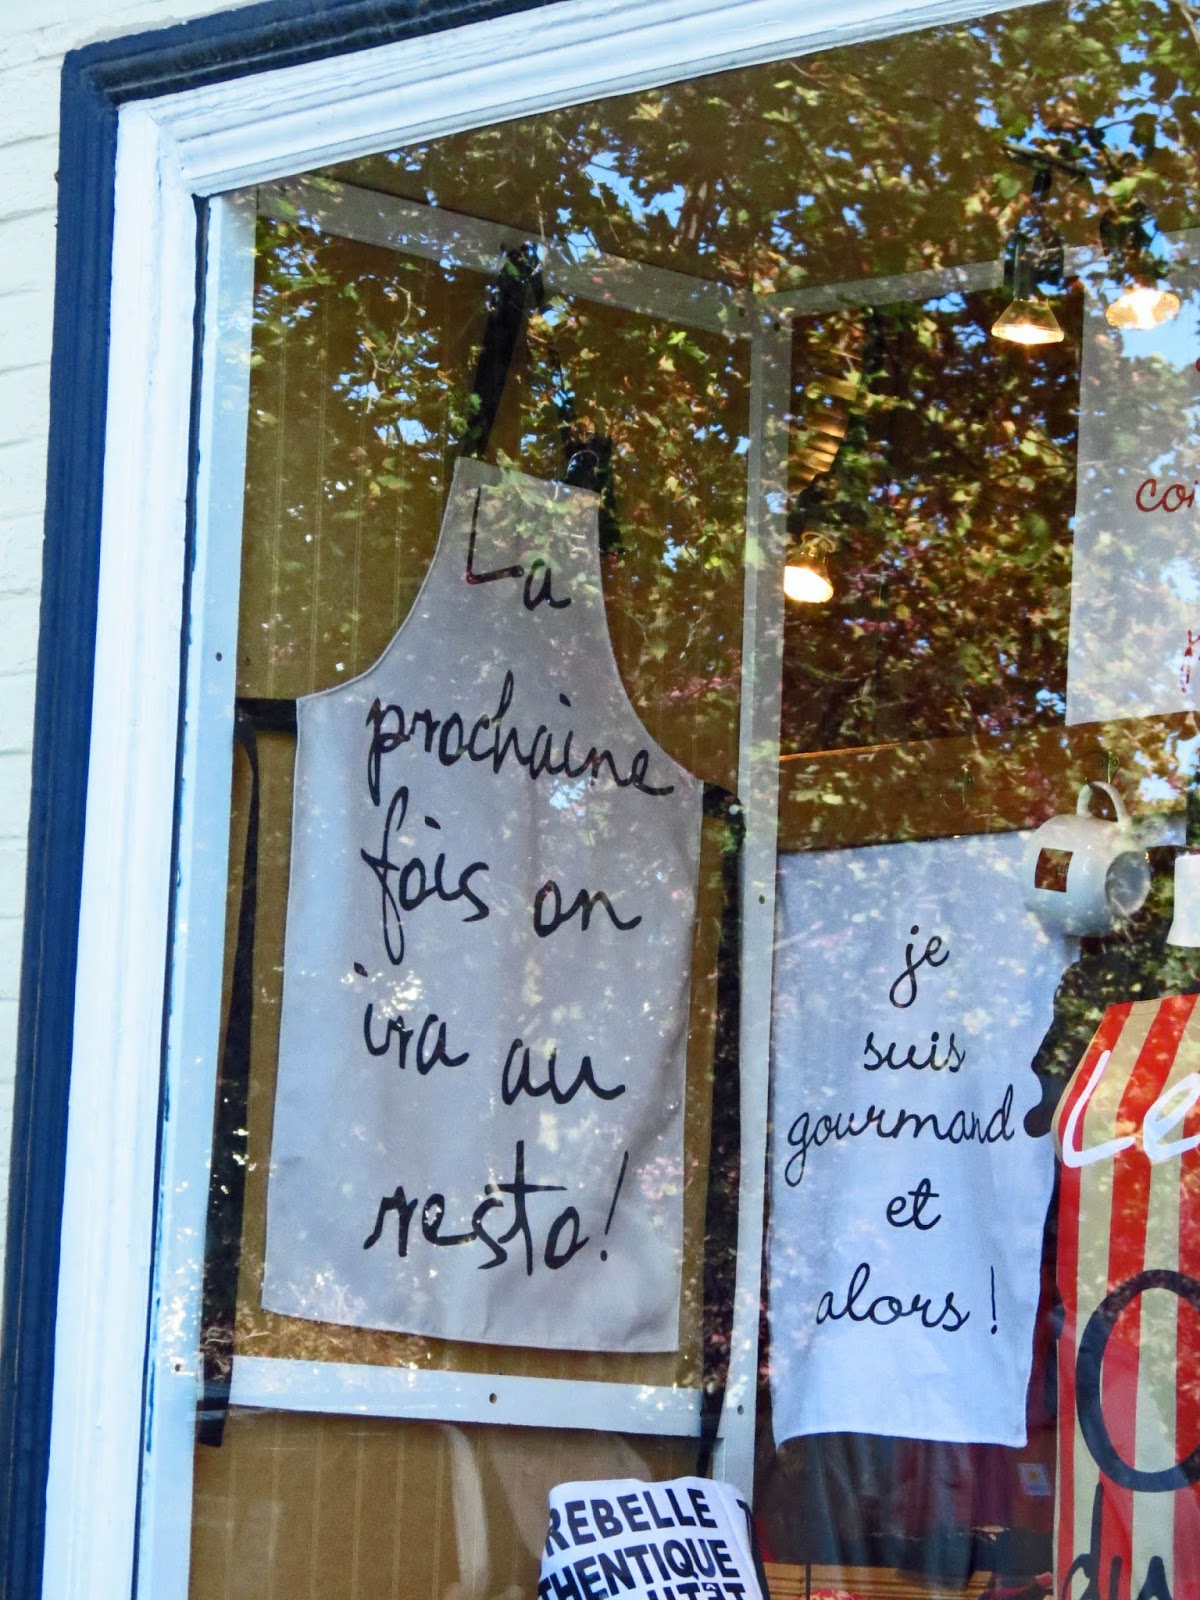 La
prochaine
fois on
ira au
resto!
je
suis
gourmand
et
alors !
Le
REBELLE